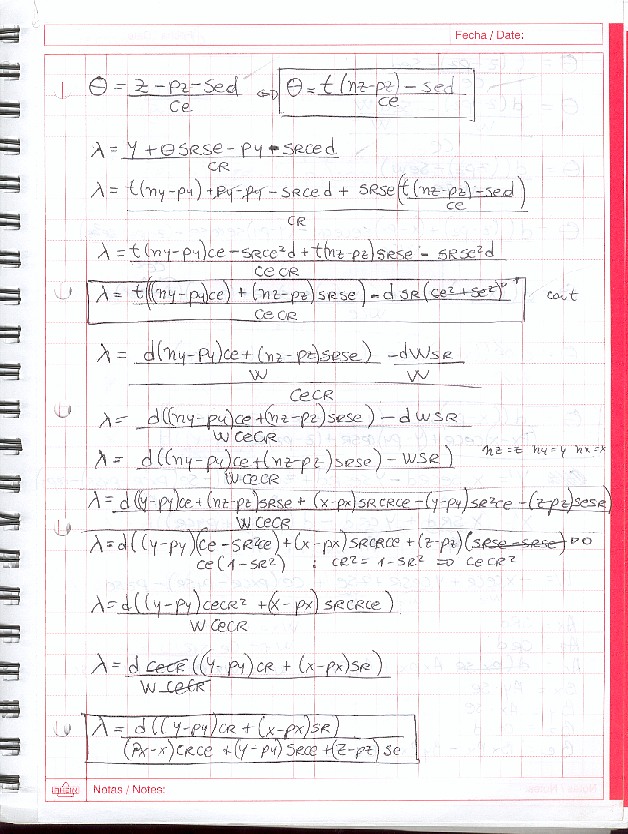 Fecha / Date:
Θ = (z - pz - sed)/ce ⇔ Θ = (t(nz-pz) - sed)/ce
λ = (y + ΘSRSE - py - SRCEd)/CR
λ = (t(ny-py) + py - py - SRCEd + SRSE(t(nz-pz) - sed)/ce)/CR
λ = (t(ny-py)ce - SRCE²d + t(nz-pz)SRSE - SRSE²d)/CECR
λ = (t((ny-py)ce) + (nz-pz)SRSE) - dSR(ce²+se²)/CECR
λ = (d(ny-py)ce + (nz-pz)SRSE)/W - dWSR/W)/CECR
λ = (d((ny-py)ce + (nz-pz)SRSE) - dWSR)/WCECR
λ = (d((ny-py)ce + (nz-pz)SRSE) - WSR)/WCECR nz=z ny=y nx=x
λ = (d(y-py)ce + (nz-pz)SRSE + (x-px)SRCRCE - (y-py)SR²ce - (z-pz)SESR)/WCECR
λ = d((y-py)(ce - SR²ce) + (x-px)SRCRCE + (z-pz)(SRSE - SRSE)
ce(1-SR²) : CR² = 1-SR² ⇒ CECR²
λ = (d((y-py)CECR² + (x-px)SRCRCE)/WCECR
λ = (d CECR((y-py)CR + (x-px)SR)/WCECR
λ = (d((y-py)CR + (x-px)SR)/((px-x)CRCE + (y-py)SRCE + (z-pz)SE
Notas / Notes: